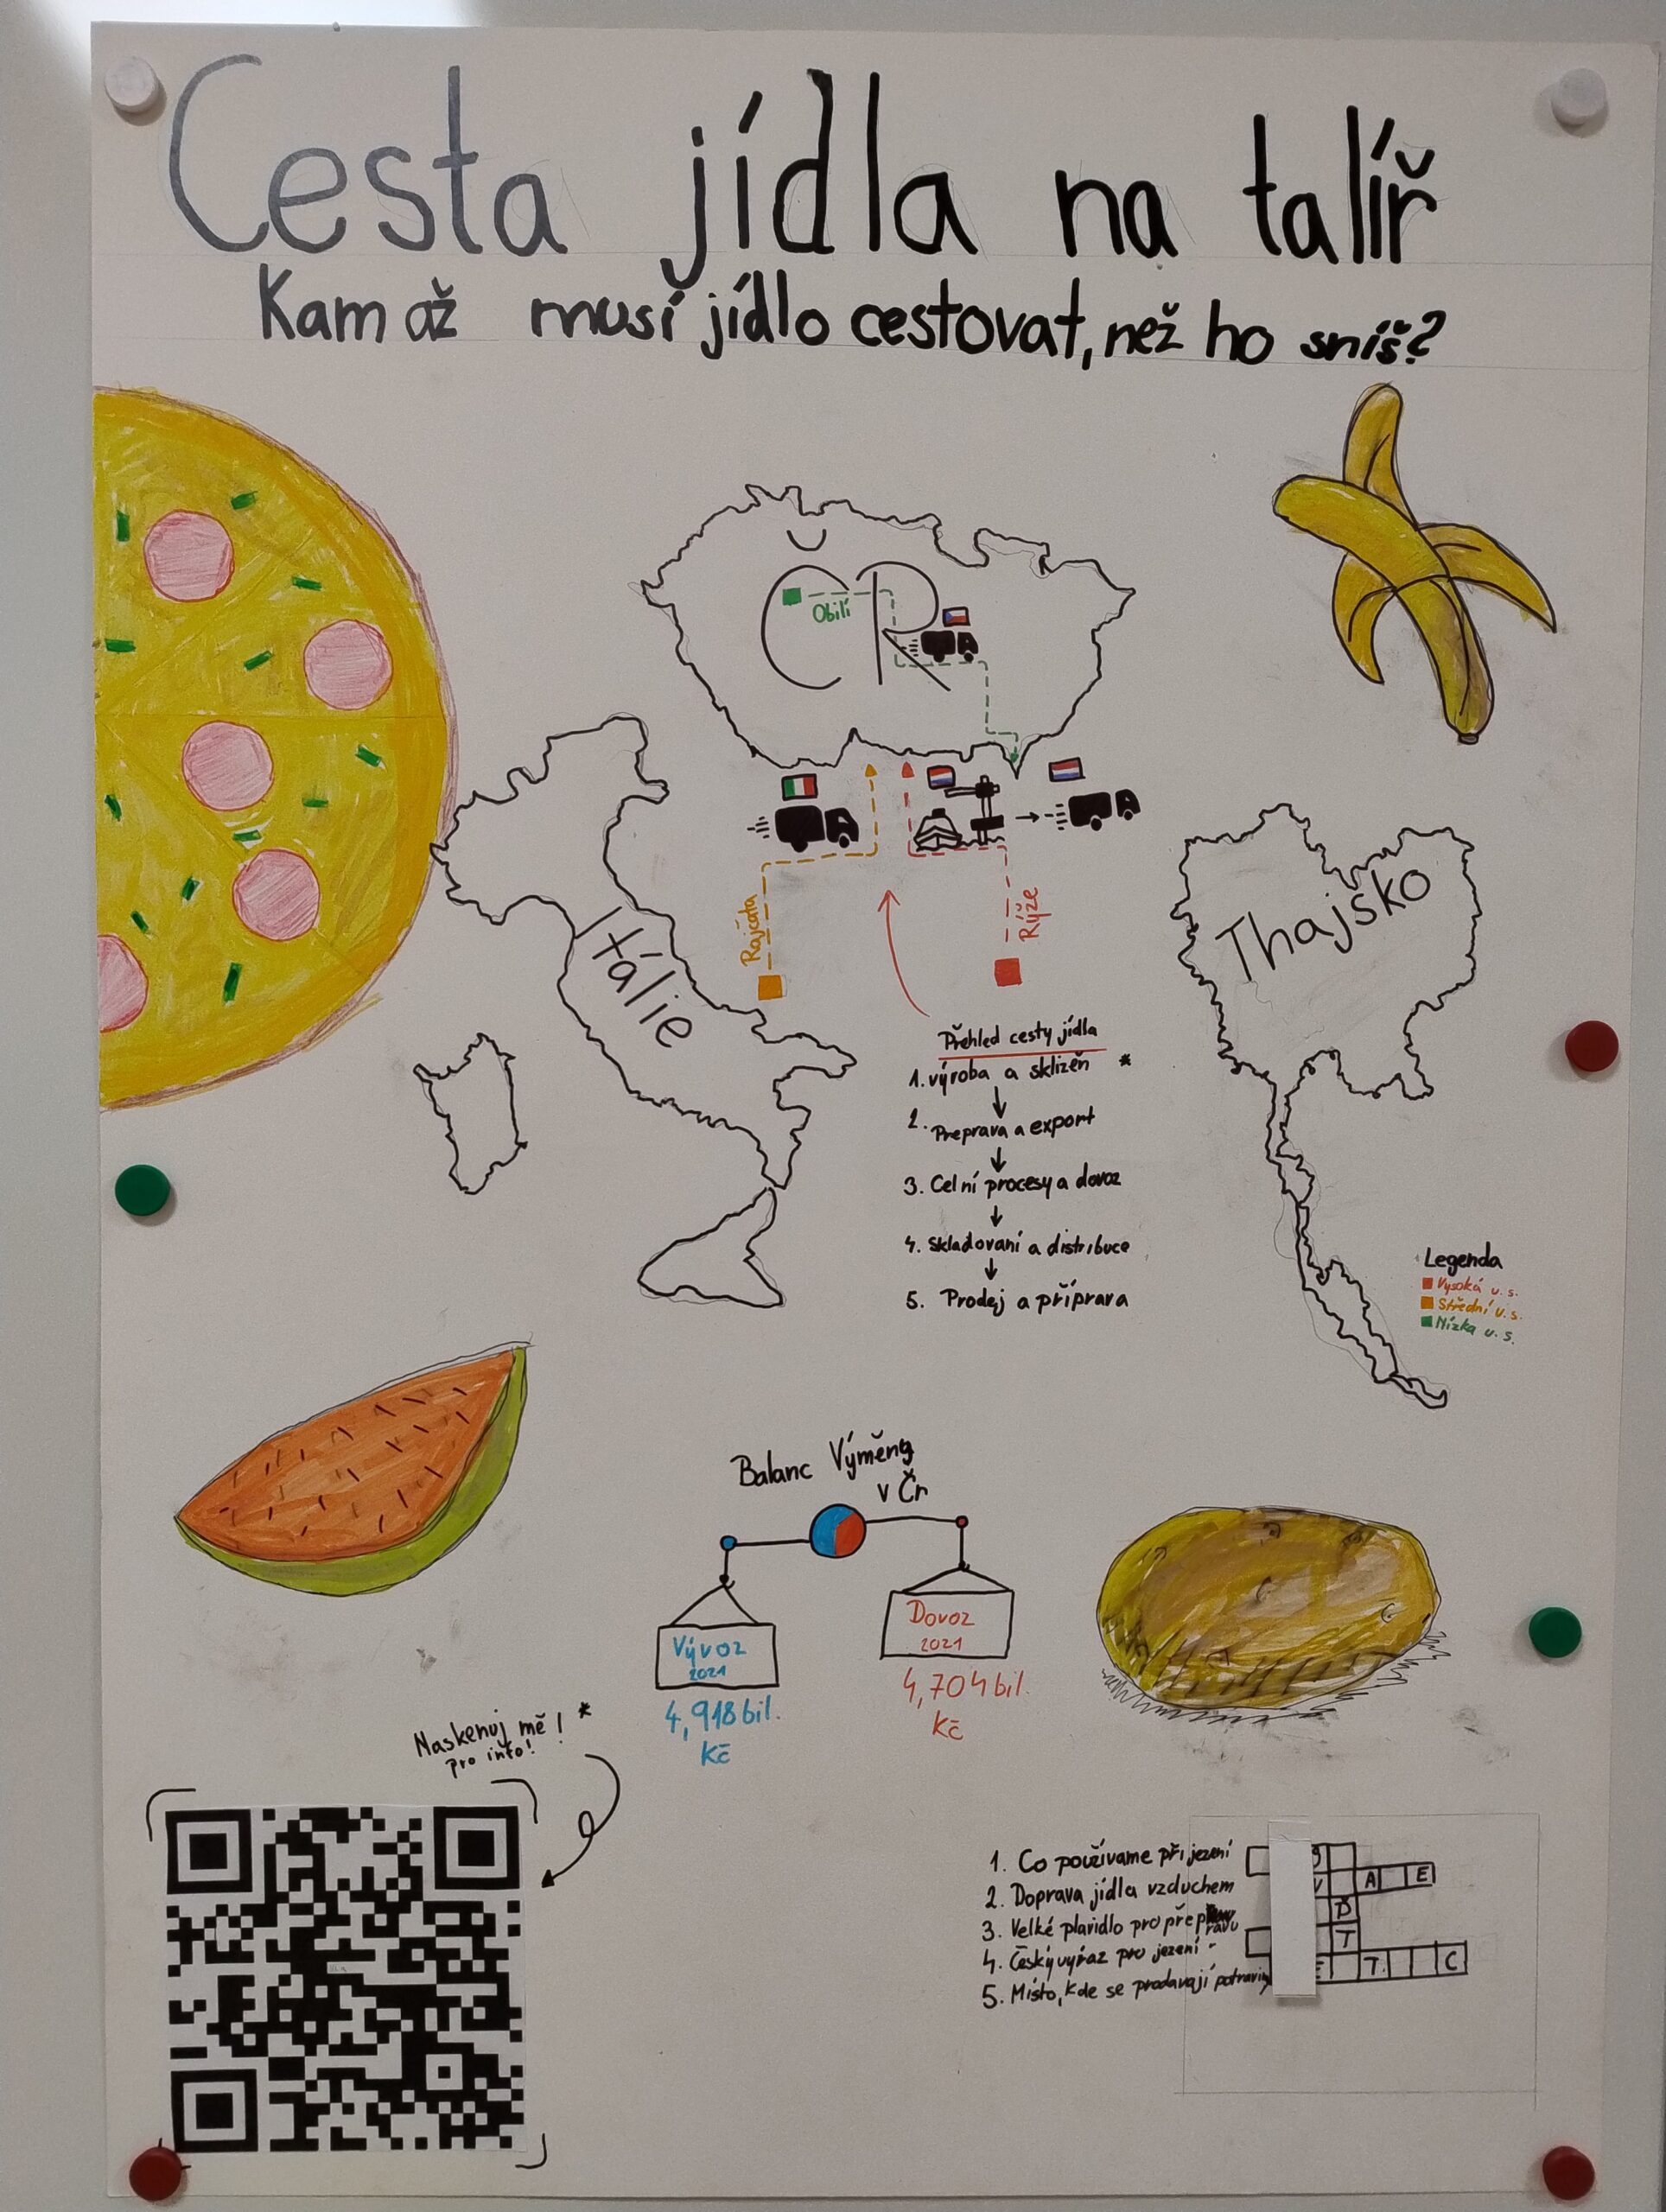 Cesta jídla na talíř
Kam až musí jídlo cestovat, než ho sníš?
ČR
Obilí
Itálie
Rajčata
Rýže
Thajsko
Přehled cesty jídla
1. výroba a sklizeň *
2. Preprava a export
3. Celní procesy a dovoz
4. skladovaní a distribuce
5. Prodej a příprava
Legenda
Vysoká u. s.
Střední u. s.
Nízka u. s.
Balanc Výměny
v Čr
Vývoz
2021
4,918 bil.
Kč
Dovoz
2021
4,704 bil.
Kč
Naskenuj mě! *
pro info!
1. Co používame při jezení
2. Doprava jídla vzduchem
3. Velké plavidlo pro přepravu
4. Český výraz pro jezení
5. Místo, kde se prodavají potraviny
A E
T
T C